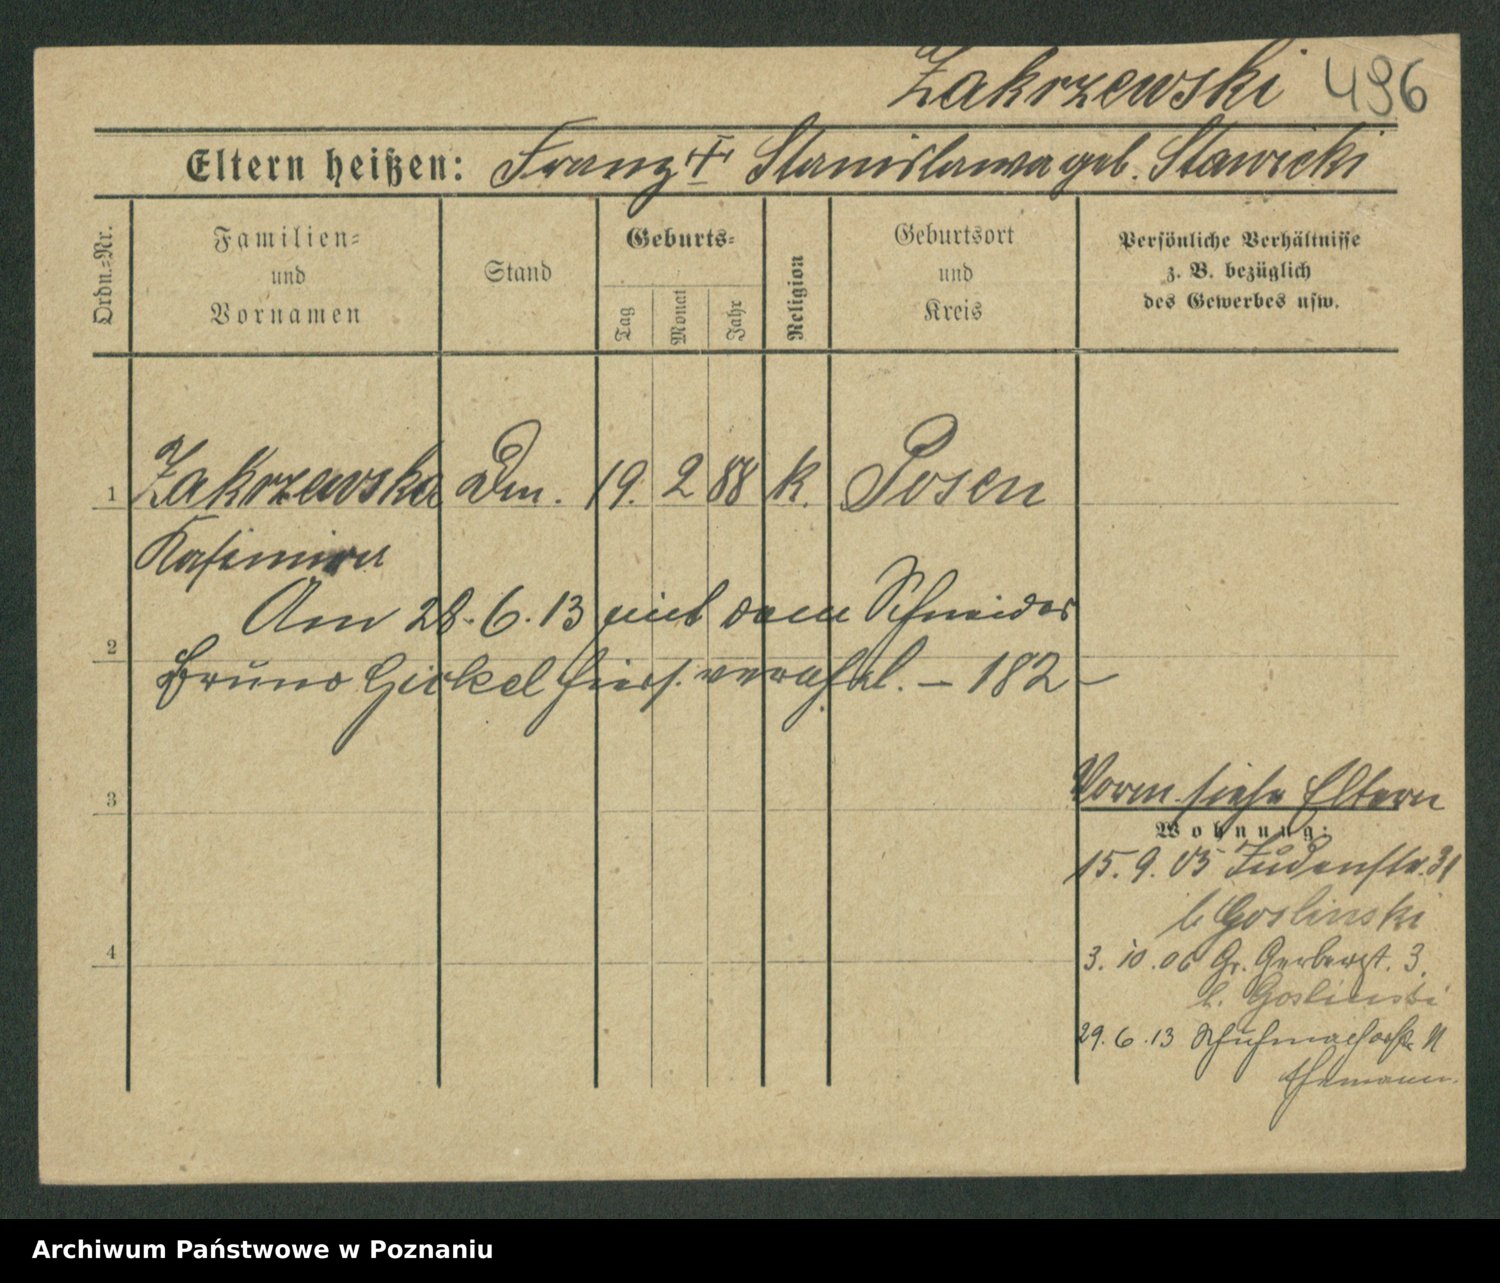 Zakrzewski 496
Eltern heißen: Franz + Stanislawa geb. Stawicki
Ordn.-Nr.
Familien- und Vornamen
Stand
Geburts-
Tag
Monat
Jahr
Religion
Geburtsort und Kreis
Persönliche Verhältnisse z. B. bezüglich des Gewerbes usw.
1 Zakrzewska Dm. 19. 2 88 k. Posen
Kasimira
Am 28.6.13 mit dem Schneider
2
Bruno Girkel hiers. verehel. – 182 –
3
Vorm siehe Eltern
Wohnung:
15.9.05 Judenstr. 31
b Goslinski
4
3.10.06 Gr. Gerberst. 3.
b. Goslinski
29.6.13 Schuhmacherstr. 11
Ehemann.
Archiwum Państwowe w Poznaniu